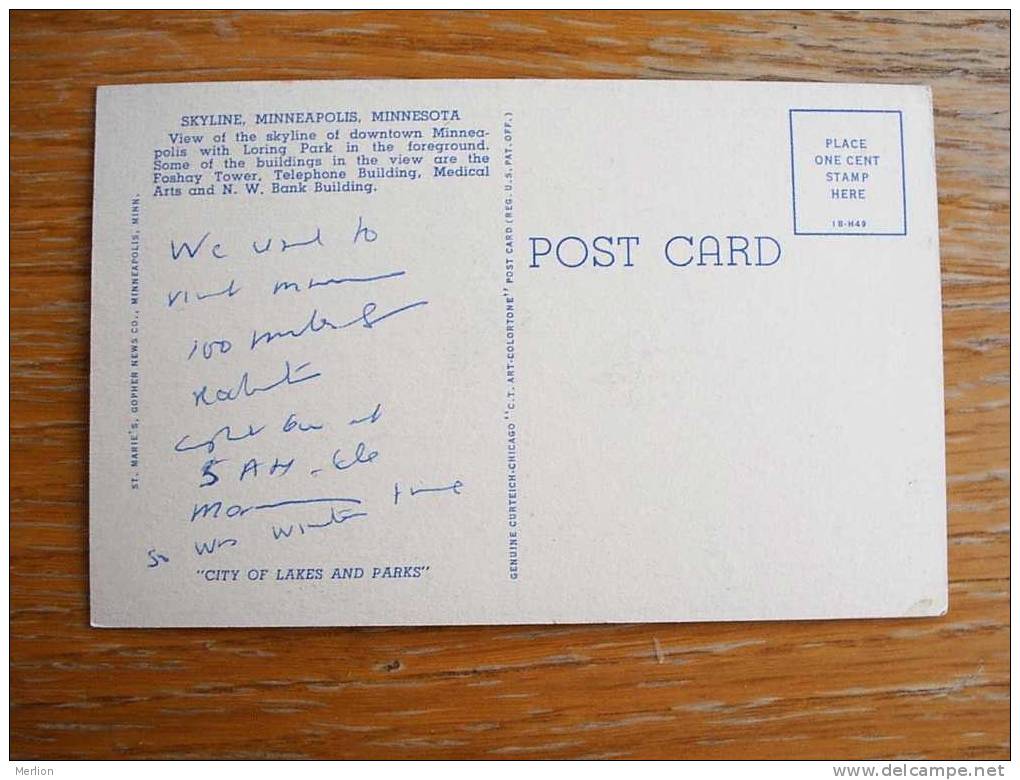 SKYLINE, MINNEAPOLIS, MINNESOTA
View of the skyline of downtown Minnea-
polis with Loring Park in the foreground.
Some of the buildings in the view are the
Foshay Tower, Telephone Building, Medical
Arts and N. W. Bank Building.
ST. MARIE'S, GOPHER NEWS CO., MINNEAPOLIS, MINN.
We used to
100
5 AM
so was winter time
"CITY OF LAKES AND PARKS"
GENUINE CURTEICH-CHICAGO "C.T. ART-COLORTONE" POST CARD (REG. U.S. PAT. OFF.)
POST CARD
PLACE
ONE CENT
STAMP
HERE
1B-H49
Merlion
www.delcampe.net